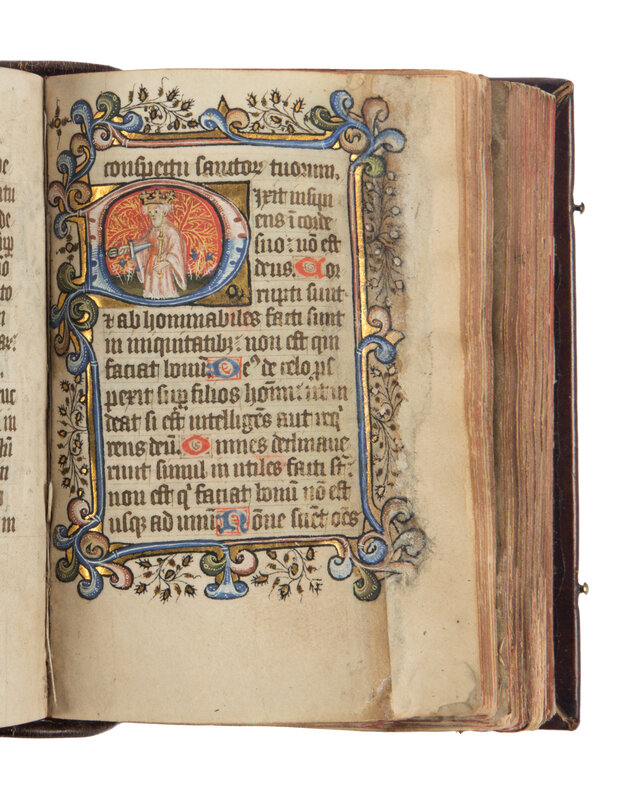 conspectu sanctor tuorum.
Dixit insipi
ens ī corde
suo: nō est
deus. Cor
rupti sunt
⁊ abhominabiles facti sunt
in iniquitatib; non est qui
faciat bonū. Deꝰ de celo ꝓs
pexit suꝑ filios homī: ut ui
deat si est intelligēs aut reqͥ
rens deū. Omnes declinaue
runt simul in utiles facti st̄
non est qͥ faciat bonū nō est
usqꝫ ad unū. Nōne sciēt oēs